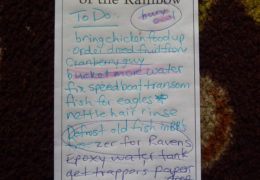 of the Rainbow
To Do
bring chicken food up
order dried fruit from
Cranberry guy
bucket more water
fix speedboat transom
fish for eagles
nettle hair rinse
Defrost old fish
for Ravens
Epoxy water tank
get trappers paper